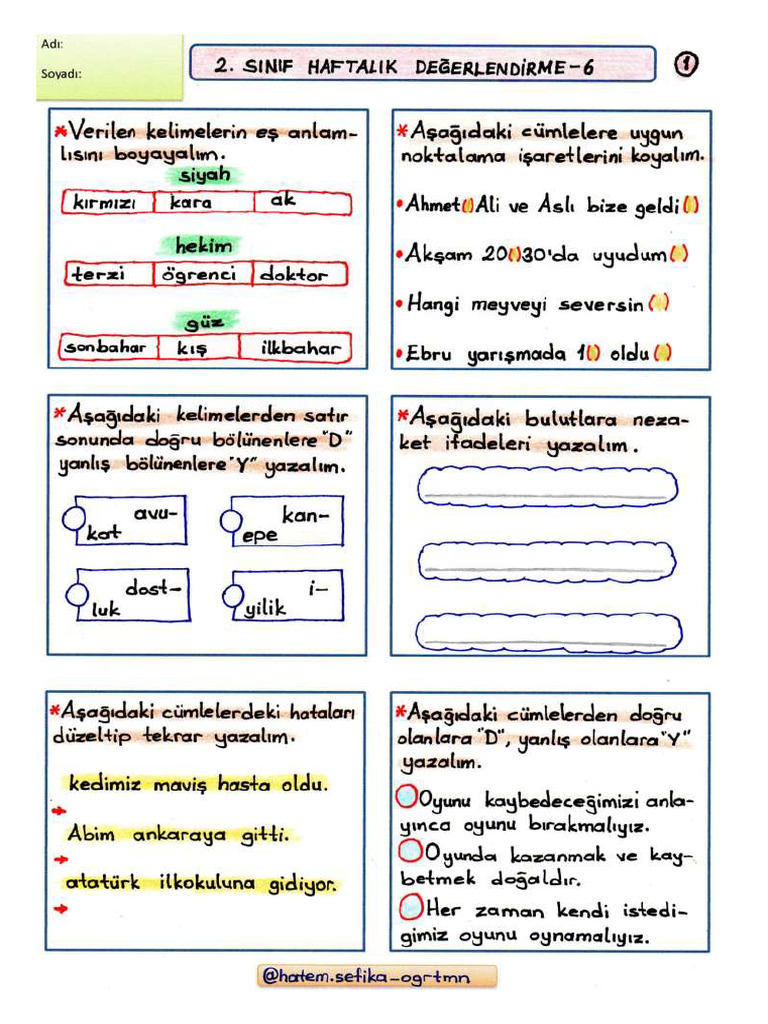 Adı:
Soyadı:
2. SINIF HAFTALIK DEĞERLENDİRME-6
1
*Verilen kelimelerin eş anlam-
lısını boyayalım.
siyah
kırmızı kara ak
hekim
terzi öğrenci doktor
güz
sonbahar kış ilkbahar
*Aşağıdaki cümlelere uygun
noktalama işaretlerini koyalım.
•Ahmet() Ali ve Aslı bize geldi()
•Akşam 20()30'da uyudum()
•Hangi meyveyi seversin()
•Ebru yarışmada 1() oldu()
*Aşağıdaki kelimelerden satır
sonunda doğru bölünenlere "D"
yanlış bölünenlere "Y" yazalım.
avu-
kat
kan-
epe
dost-
luk
i-
yilik
*Aşağıdaki bulutlara neza-
ket ifadeleri yazalım.
*Aşağıdaki cümlelerdeki hataları
düzeltip tekrar yazalım.
kedimiz maviş hasta oldu.
Abim ankaraya gitti.
atatürk ilkokuluna gidiyor.
*Aşağıdaki cümlelerden doğru
olanlara "D", yanlış olanlara "Y"
yazalım.
Oyunu kaybedeceğimizi anla-
yınca oyunu bırakmalıyız.
Oyunda kazanmak ve kay-
betmek doğaldır.
Her zaman kendi istedi-
ğimiz oyunu oynamalıyız.
@hatem.sefika_ogrtmn